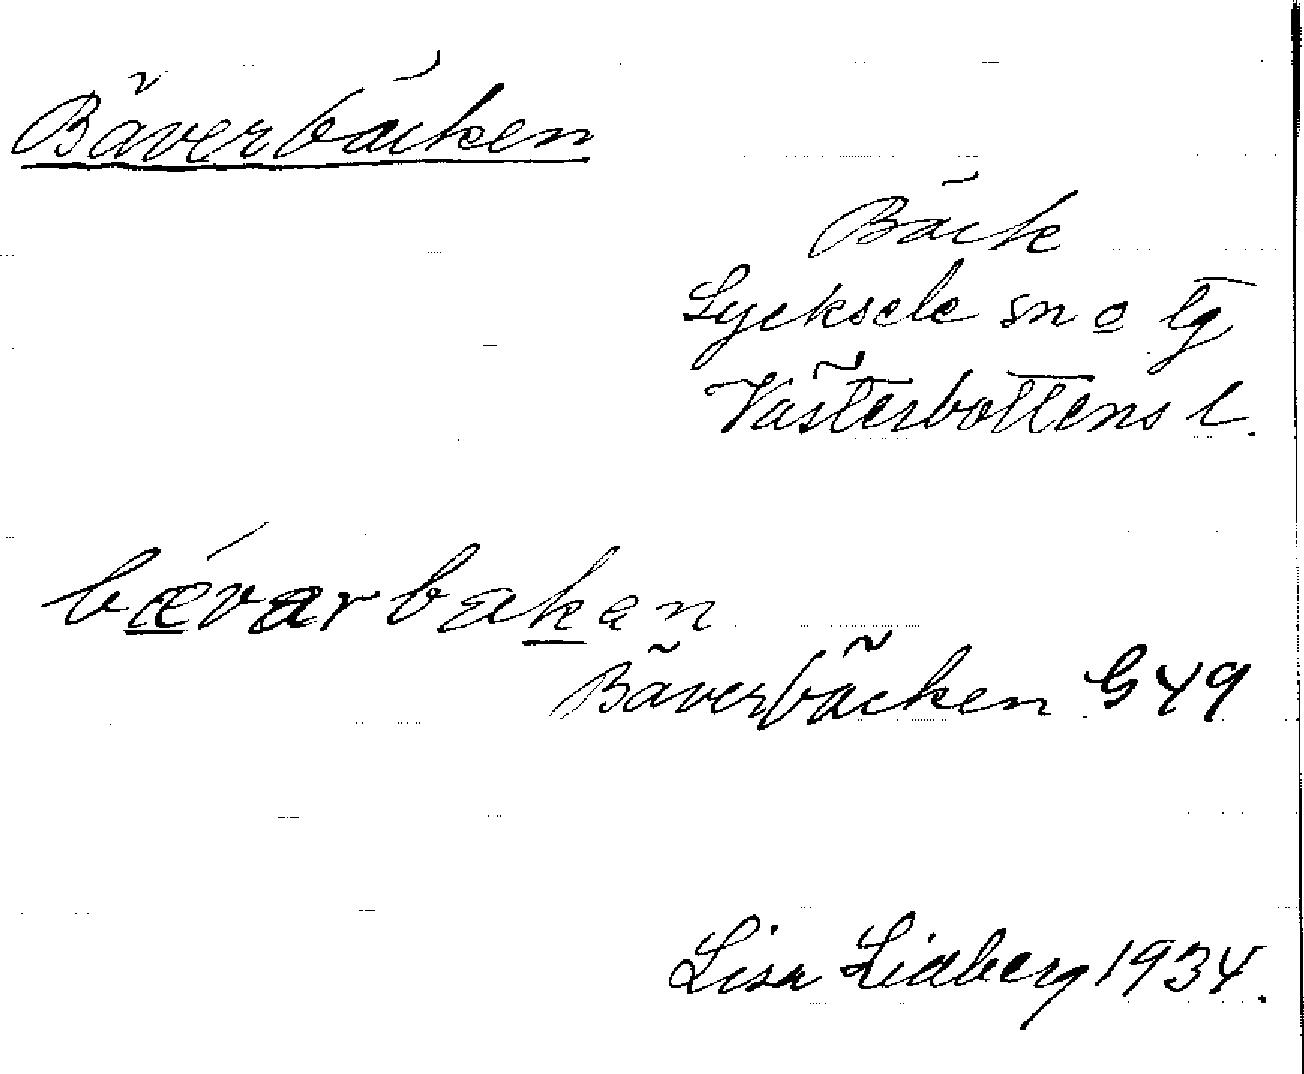 Bäverbäcken
Bäck
Lycksele sn o lg
Västerbottens l.
bævarbakan
Bäverbäcken G 49
Lisa Lidberg 1934.